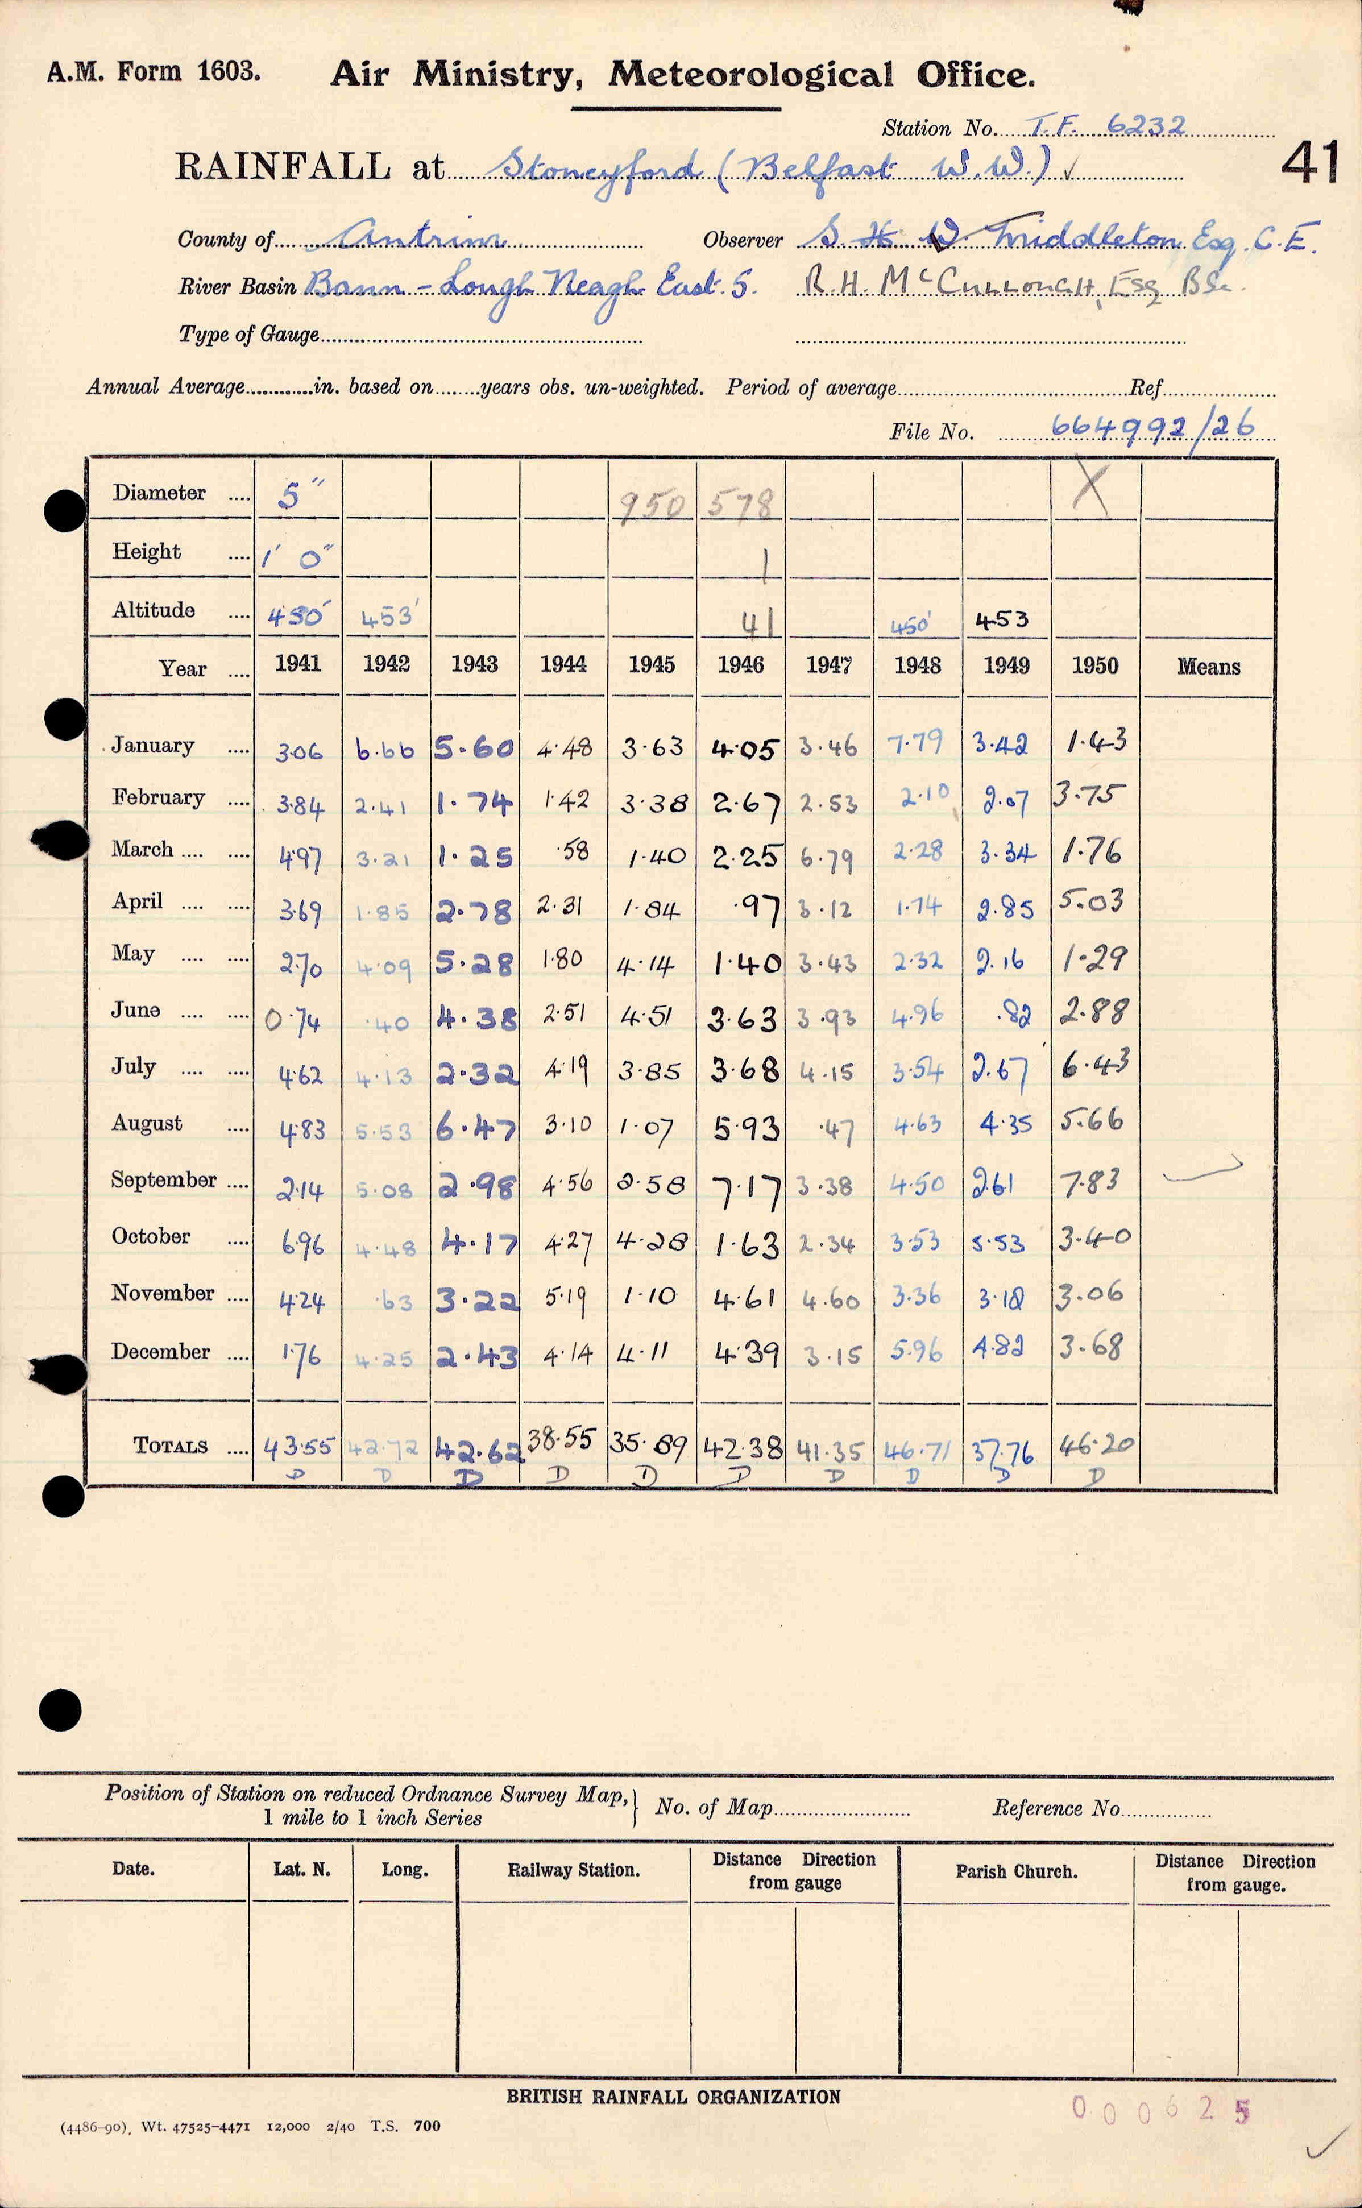 A.M. Form 1603. Air Ministry, Meteorological Office.
Station No. T.F. 6232
41
RAINFALL at Stoneyford (Belfast W.W.) ✓
County of Antrim Observer S H W Middleton Esq. C.E.
River Basin Bann - Lough Neagh East. 5. R.H. McCullough, Esq BSc.
Type of Gauge
Annual Average in. based on years obs. un-weighted. Period of average Ref
File No. 664992/26
Diameter 5" 950 578 X
Height 1' 0" 1
Altitude 450' 453' 41 450' 453
Year 1941 1942 1943 1944 1945 1946 1947 1948 1949 1950 Means
January 3.06 6.66 5.60 4.48 3.63 4.05 3.46 7.79 3.42 1.43
February 3.84 2.41 1.74 1.42 3.38 2.67 2.53 2.10 2.07 3.75
March 4.97 3.21 1.25 .58 1.40 2.25 6.79 2.28 3.34 1.76
April 3.69 1.85 2.78 2.31 1.84 .97 3.12 1.74 2.85 5.03
May 2.70 4.09 5.28 1.80 4.14 1.40 3.43 2.32 2.16 1.29
June 0.74 .40 4.38 2.51 4.51 3.63 3.93 4.96 .82 2.88
July 4.62 4.13 2.32 4.19 3.85 3.68 4.15 3.54 2.67 6.43
August 4.83 5.53 6.47 3.10 1.07 5.93 .47 4.63 4.35 5.66
September 2.14 5.08 2.98 4.56 2.58 7.17 3.38 4.50 2.61 7.83
October 6.96 4.48 4.17 4.27 4.28 1.63 2.34 3.53 5.53 3.40
November 4.24 .63 3.22 5.19 1.10 4.61 4.60 3.36 3.12 3.06
December 1.76 4.25 2.43 4.14 4.11 4.39 3.15 5.96 4.82 3.68
TOTALS 43.55 42.72 42.62 38.55 35.89 42.38 41.35 46.71 37.76 46.20
D D D D D D D D D D
Position of Station on reduced Ordnance Survey Map, } No. of Map Reference No
1 mile to 1 inch Series
Date. Lat. N. Long. Railway Station. Distance Direction from gauge Parish Church. Distance Direction from gauge.
BRITISH RAINFALL ORGANIZATION
000625
(4486-90). Wt. 47525-4471 12,000 2/40 T.S. 700